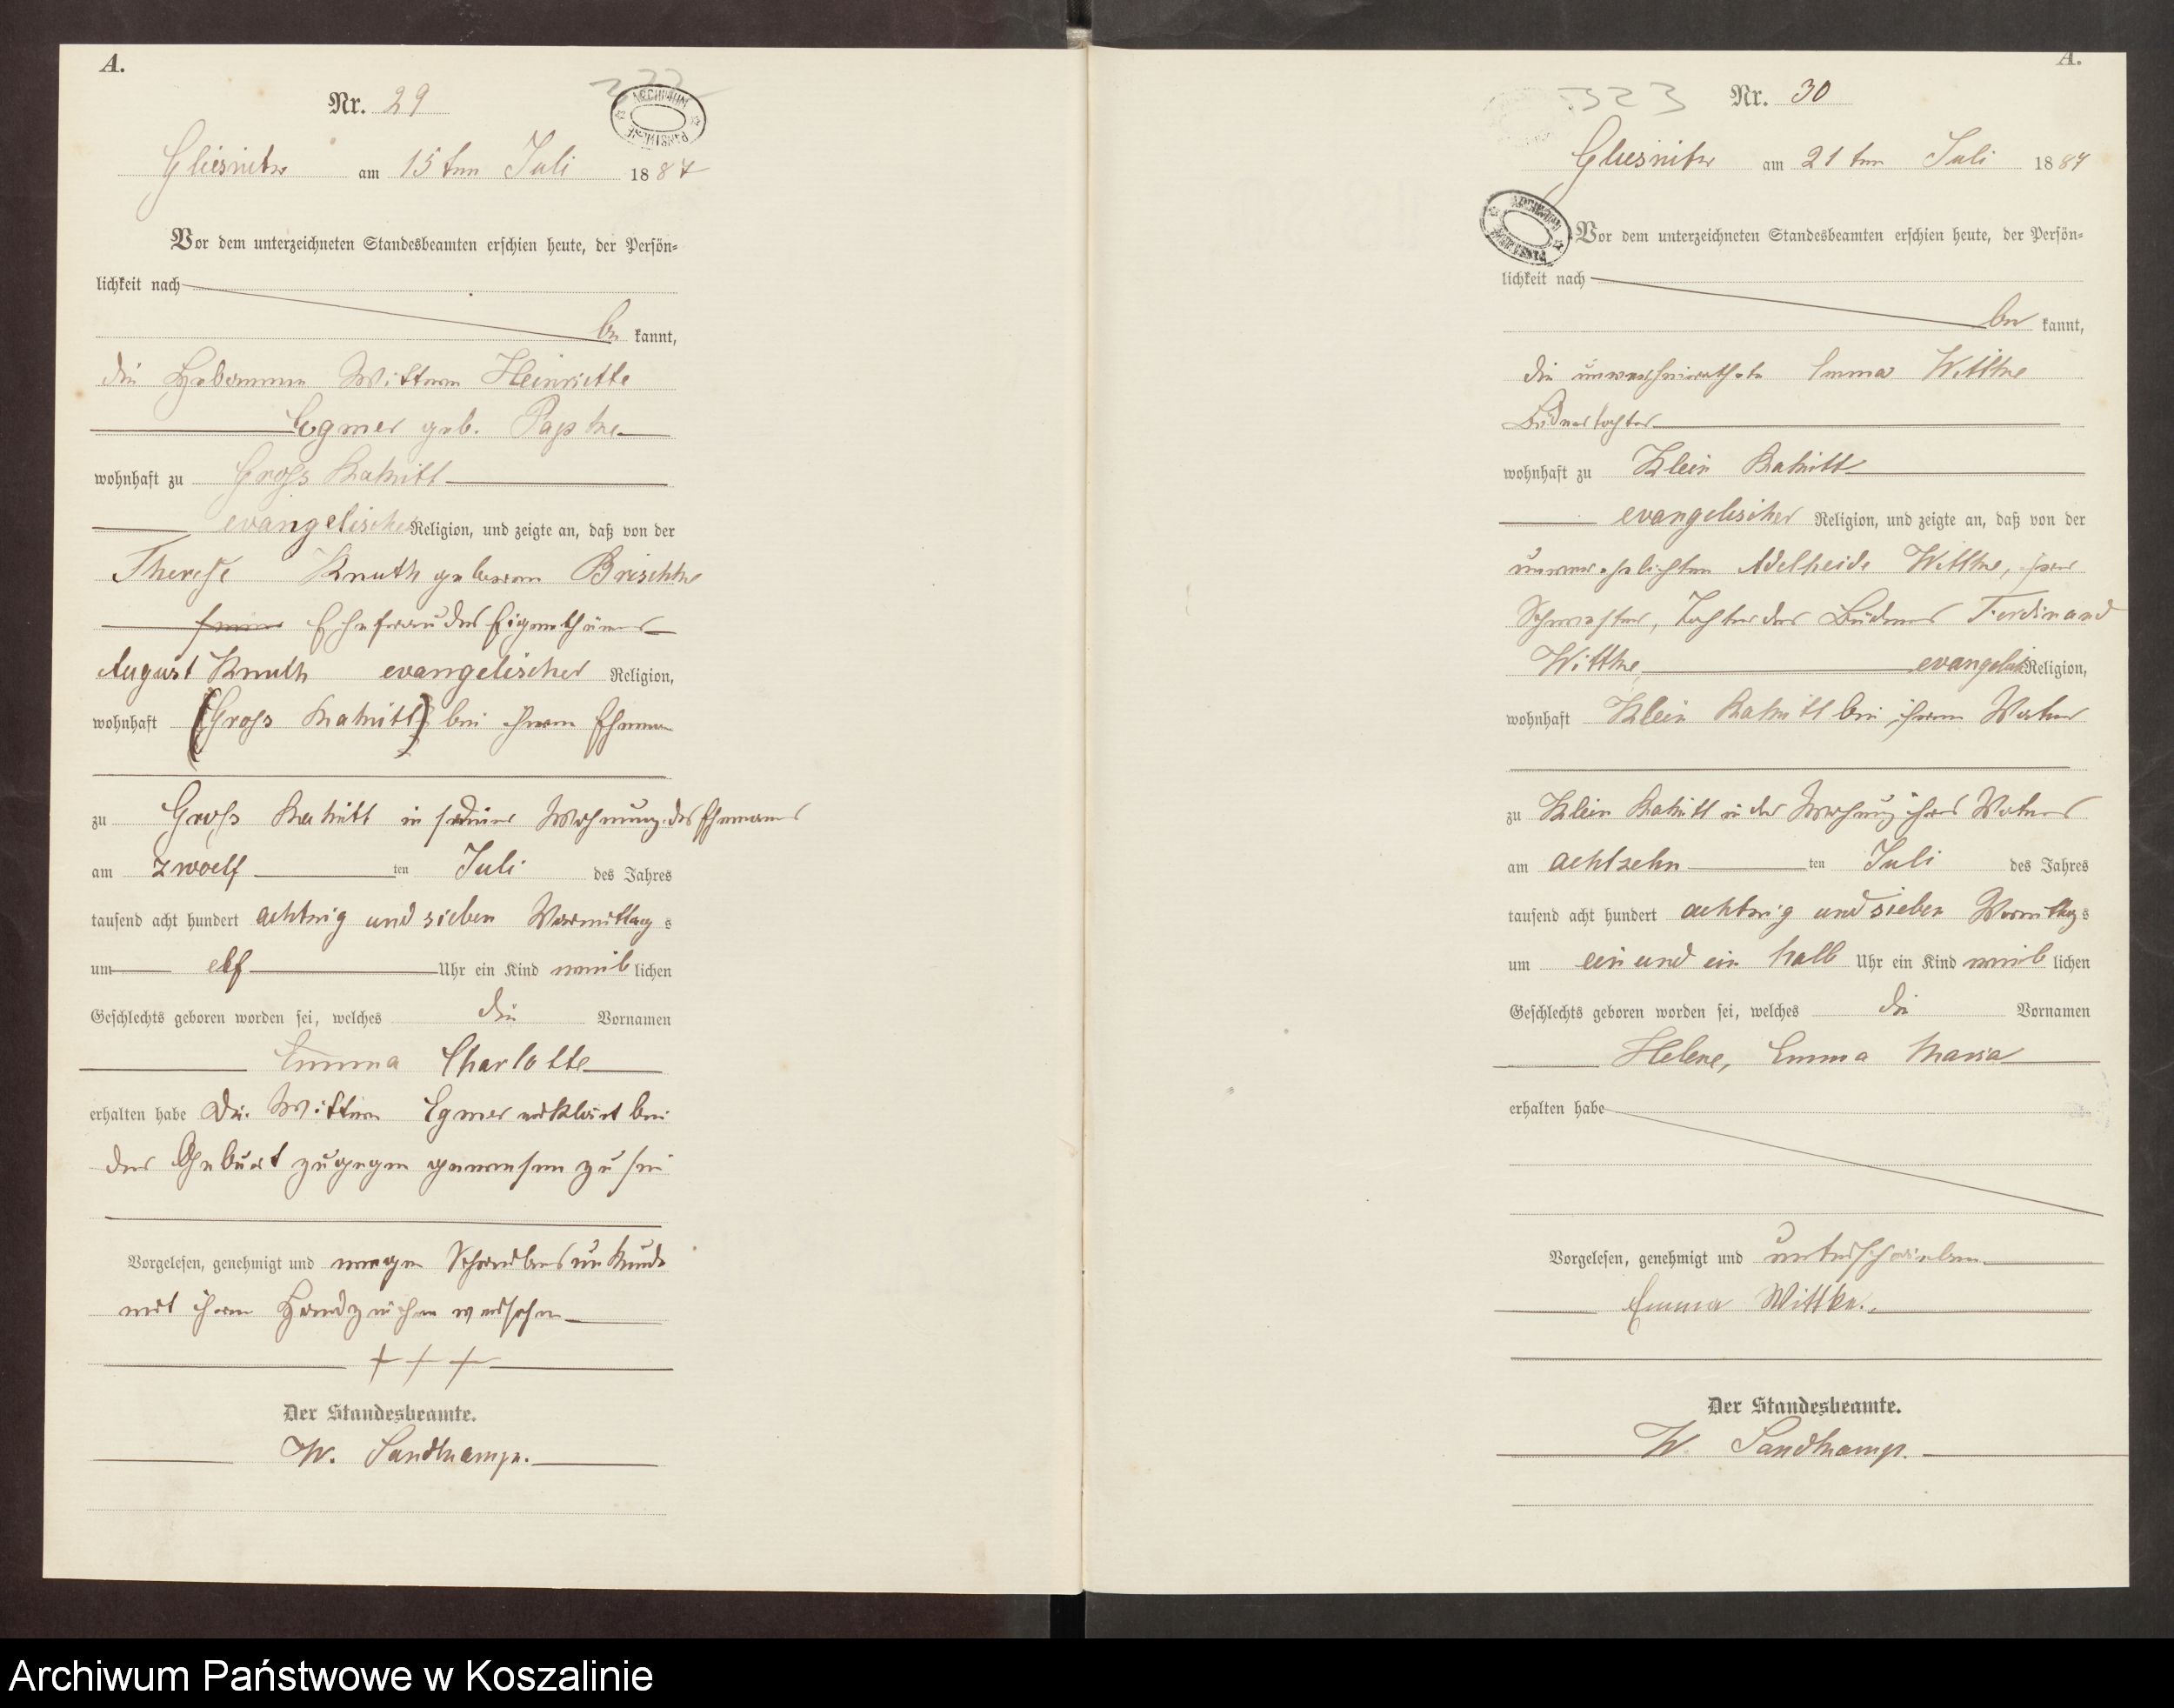 A.
Nr. 29
322
ARCHIWUM
Gliesnitz am 15 ten Juli 1887
Vor dem unterzeichneten Standesbeamten erschien heute, der Persön-
lichkeit nach
be kannt,
die Hebamme Wittwe Heinriette
Egmer geb. Papke
wohnhaft zu Gross Rakitt
evangelischer Religion, und zeigte an, daß von der
Therese Knuth geboren Brischke
Ehefrau des Eigenthümers
August Knuth evangelischer Religion,
wohnhaft (Gross Rakitt) bei ihrem Ehemann
zu Gross Rakitt in der Wohnung des Ehemanns
am zwoelf ten Juli des Jahres
tausend acht hundert achtzig und sieben Vormittag s
um elf Uhr ein Kind weib lichen
Geschlechts geboren worden sei, welches die Vornamen
Emma Charlotte
erhalten habe Die Wittwe Egmer erklärt bei
der Geburt zugegen gewesen zu sei
Vorgelesen, genehmigt und wegen Schreibensunkunde
mit ihrem Handzeichen versehen
+ + +
Der Standesbeamte.
W. Sandkamp.
A.
323
Nr. 30
Gliesnitz am 21 ten Juli 1887
ARCHIWUM
Vor dem unterzeichneten Standesbeamten erschien heute, der Persön-
lichkeit nach
be kannt,
die unverheirathete Emma Wittke
Büdnertochter
wohnhaft zu Klein Rakitt
evangelischer Religion, und zeigte an, daß von der
unverehelichten Adelheide Wittke, ihrer
Schwester, Tochter des Büdners Ferdinand
Wittke, evangelisch Religion,
wohnhaft Klein Rakitt bei ihrem Vater
zu Klein Rakitt in der Wohnung ihres Vaters
am achtzehn ten Juli des Jahres
tausend acht hundert achtzig und sieben Vormittag s
um ein und ein halb Uhr ein Kind weib lichen
Geschlechts geboren worden sei, welches die Vornamen
Helene, Emma Maria
erhalten habe
Vorgelesen, genehmigt und unterschrieben
Emma Wittke.
Der Standesbeamte.
W. Sandkamp.
Archiwum Państwowe w Koszalinie